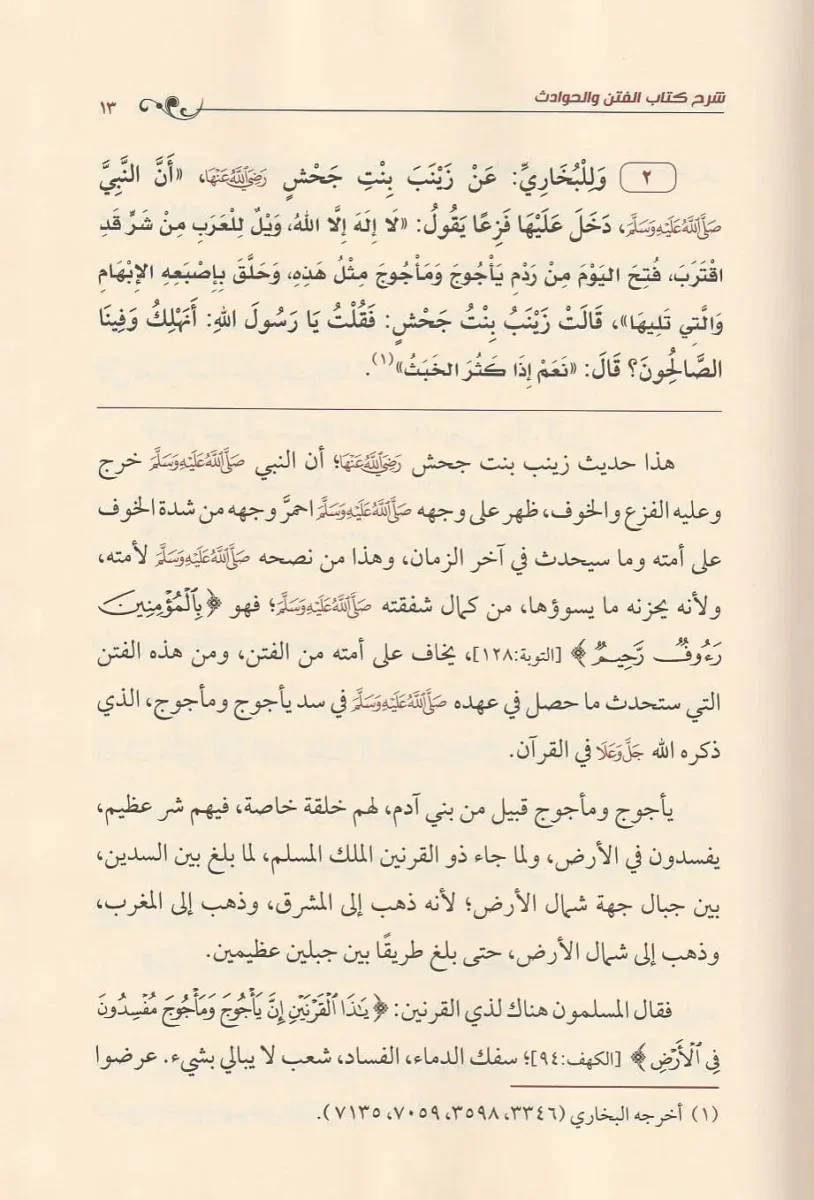 شرح كتاب الفتن والحوادث
١٣
٢ وَلِلْبُخَارِيِّ: عَنْ زَيْنَبَ بِنْتِ جَحْشٍ رَضِيَ اللَّهُ عَنْهَا، «أَنَّ النَّبِيَّ
صَلَّى اللَّهُ عَلَيْهِ وَسَلَّمَ، دَخَلَ عَلَيْهَا فَزِعًا يَقُولُ: «لَا إِلَهَ إِلَّا اللهُ، وَيْلٌ لِلْعَرَبِ مِنْ شَرٍّ قَدِ
اقْتَرَبَ، فُتِحَ اليَوْمَ مِنْ رَدْمِ يَأْجُوجَ وَمَأْجُوجَ مِثْلُ هَذِهِ، وَحَلَّقَ بِإِصْبَعِهِ الإِبْهَامِ
وَالَّتِي تَلِيهَا»، قَالَتْ زَيْنَبُ بِنْتُ جَحْشٍ: فَقُلْتُ يَا رَسُولَ اللهِ: أَنَهْلِكُ وَفِينَا
الصَّالِحُونَ؟ قَالَ: «نَعَمْ إِذَا كَثُرَ الخَبَثُ»(١).
هذا حديث زينب بنت جحش رَضِيَ اللَّهُ عَنْهَا؛ أن النبي صَلَّى اللَّهُ عَلَيْهِ وَسَلَّمَ خرج
وعليه الفزع والخوف، ظهر على وجهه صَلَّى اللَّهُ عَلَيْهِ وَسَلَّمَ احمرَّ وجهه من شدة الخوف
على أمته وما سيحدث في آخر الزمان، وهذا من نصحه صَلَّى اللَّهُ عَلَيْهِ وَسَلَّمَ لأمته،
ولأنه يحزنه ما يسوؤها، من كمال شفقته صَلَّى اللَّهُ عَلَيْهِ وَسَلَّمَ؛ فهو ﴿بِٱلْمُؤْمِنِينَ
رَءُوفٌ رَّحِيمٌ﴾ [التوبة:١٢٨]، يخاف على أمته من الفتن، ومن هذه الفتن
التي ستحدث ما حصل في عهده صَلَّى اللَّهُ عَلَيْهِ وَسَلَّمَ في سد يأجوج ومأجوج، الذي
ذكره الله جَلَّ وَعَلَا في القرآن.
يأجوج ومأجوج قبيل من بني آدم، لهم خلقة خاصة، فيهم شر عظيم،
يفسدون في الأرض، ولما جاء ذو القرنين الملك المسلم، لما بلغ بين السدين،
بين جبال جهة شمال الأرض؛ لأنه ذهب إلى المشرق، وذهب إلى المغرب،
وذهب إلى شمال الأرض، حتى بلغ طريقًا بين جبلين عظيمين.
فقال المسلمون هناك لذي القرنين: ﴿يَٰذَا ٱلْقَرْنَيْنِ إِنَّ يَأْجُوجَ وَمَأْجُوجَ مُفْسِدُونَ
فِي ٱلْأَرْضِ﴾ [الكهف:٩٤]؛ سفك الدماء، الفساد، شعب لا يبالي بشيء. عرضوا
(١) أخرجه البخاري (٣٣٤٦، ٣٥٩٨، ٧٠٥٩، ٧١٣٥).